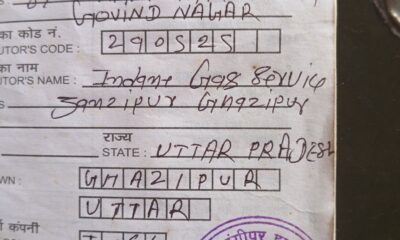 GOVIND NAGAR
का कोड नं.
UTOR'S CODE : 290525
का नाम
UTOR'S NAME : Indane Gas Service
Janzipur Ghazipur
राज्य
STATE : UTTAR PRADESH
WN : GHAZIPUR
UTTAR
कंपनी